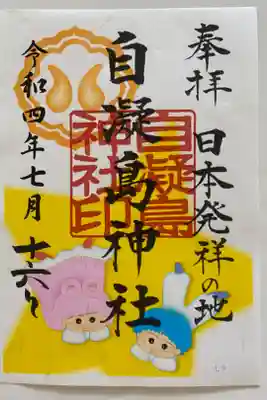 奉拝
日本発祥の地
自凝島神社
自凝島
神社印
令和四年七月十六日